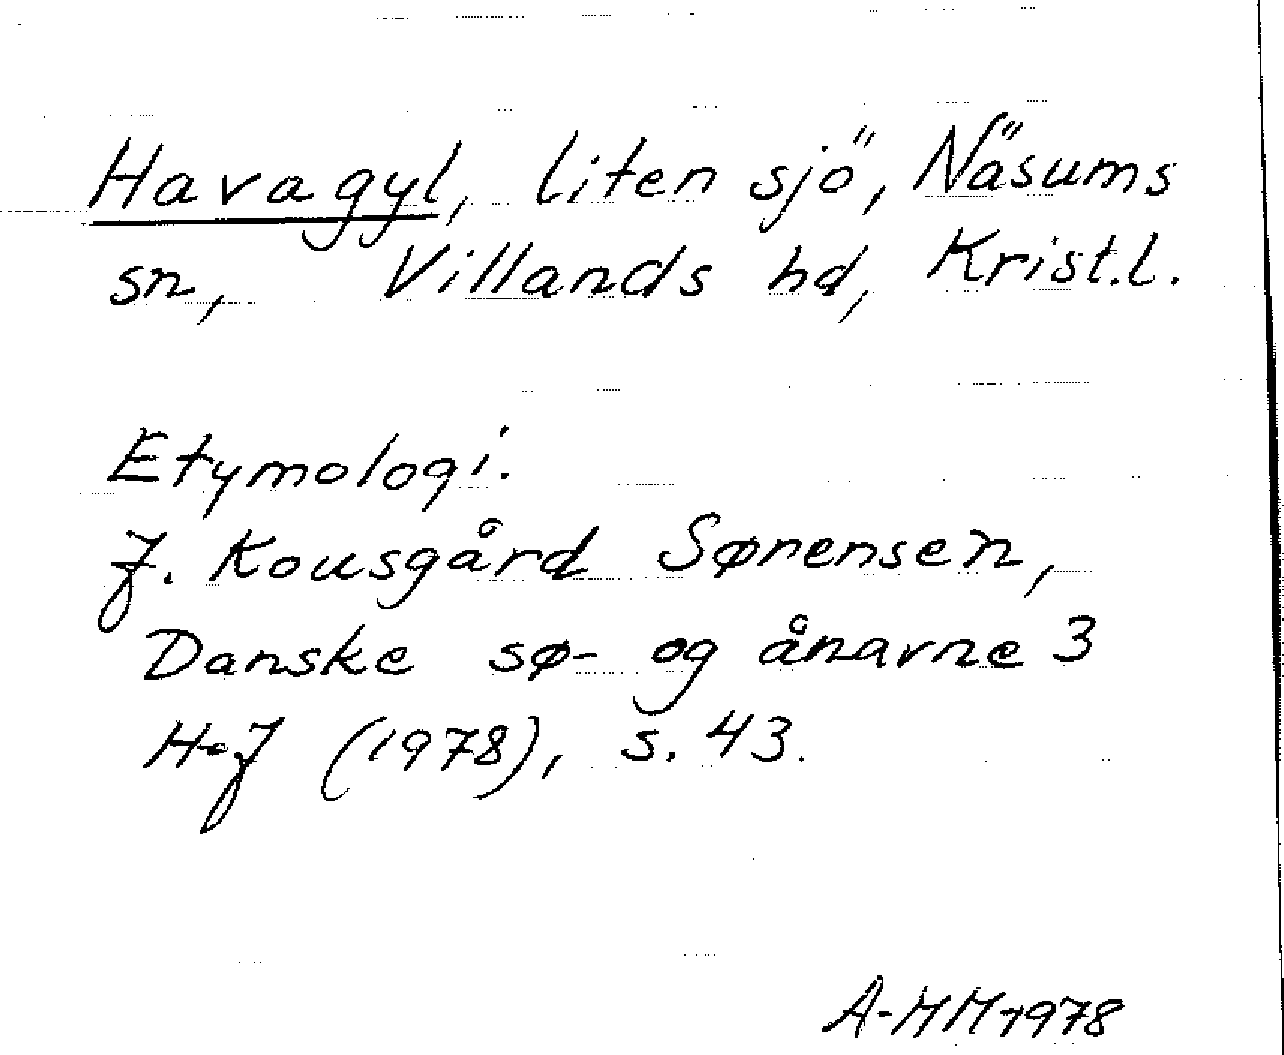 Havagyl, liten sjö, Näsums
sn, Villands hd, Krist.l.
Etymologi.
J. Kousgård Sørensen,
Danske sø- og ånavne 3
H-J (1978), s. 43.
A-MM 1978